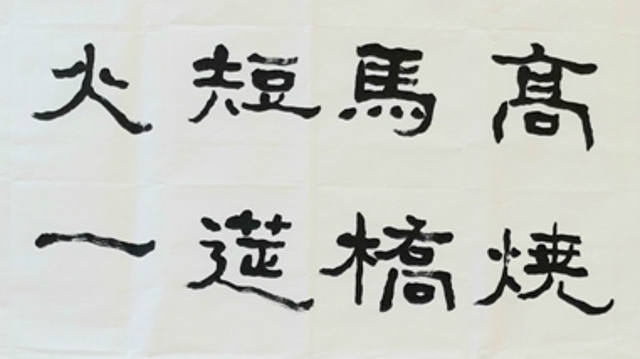 高燒
馬橋
短
火一